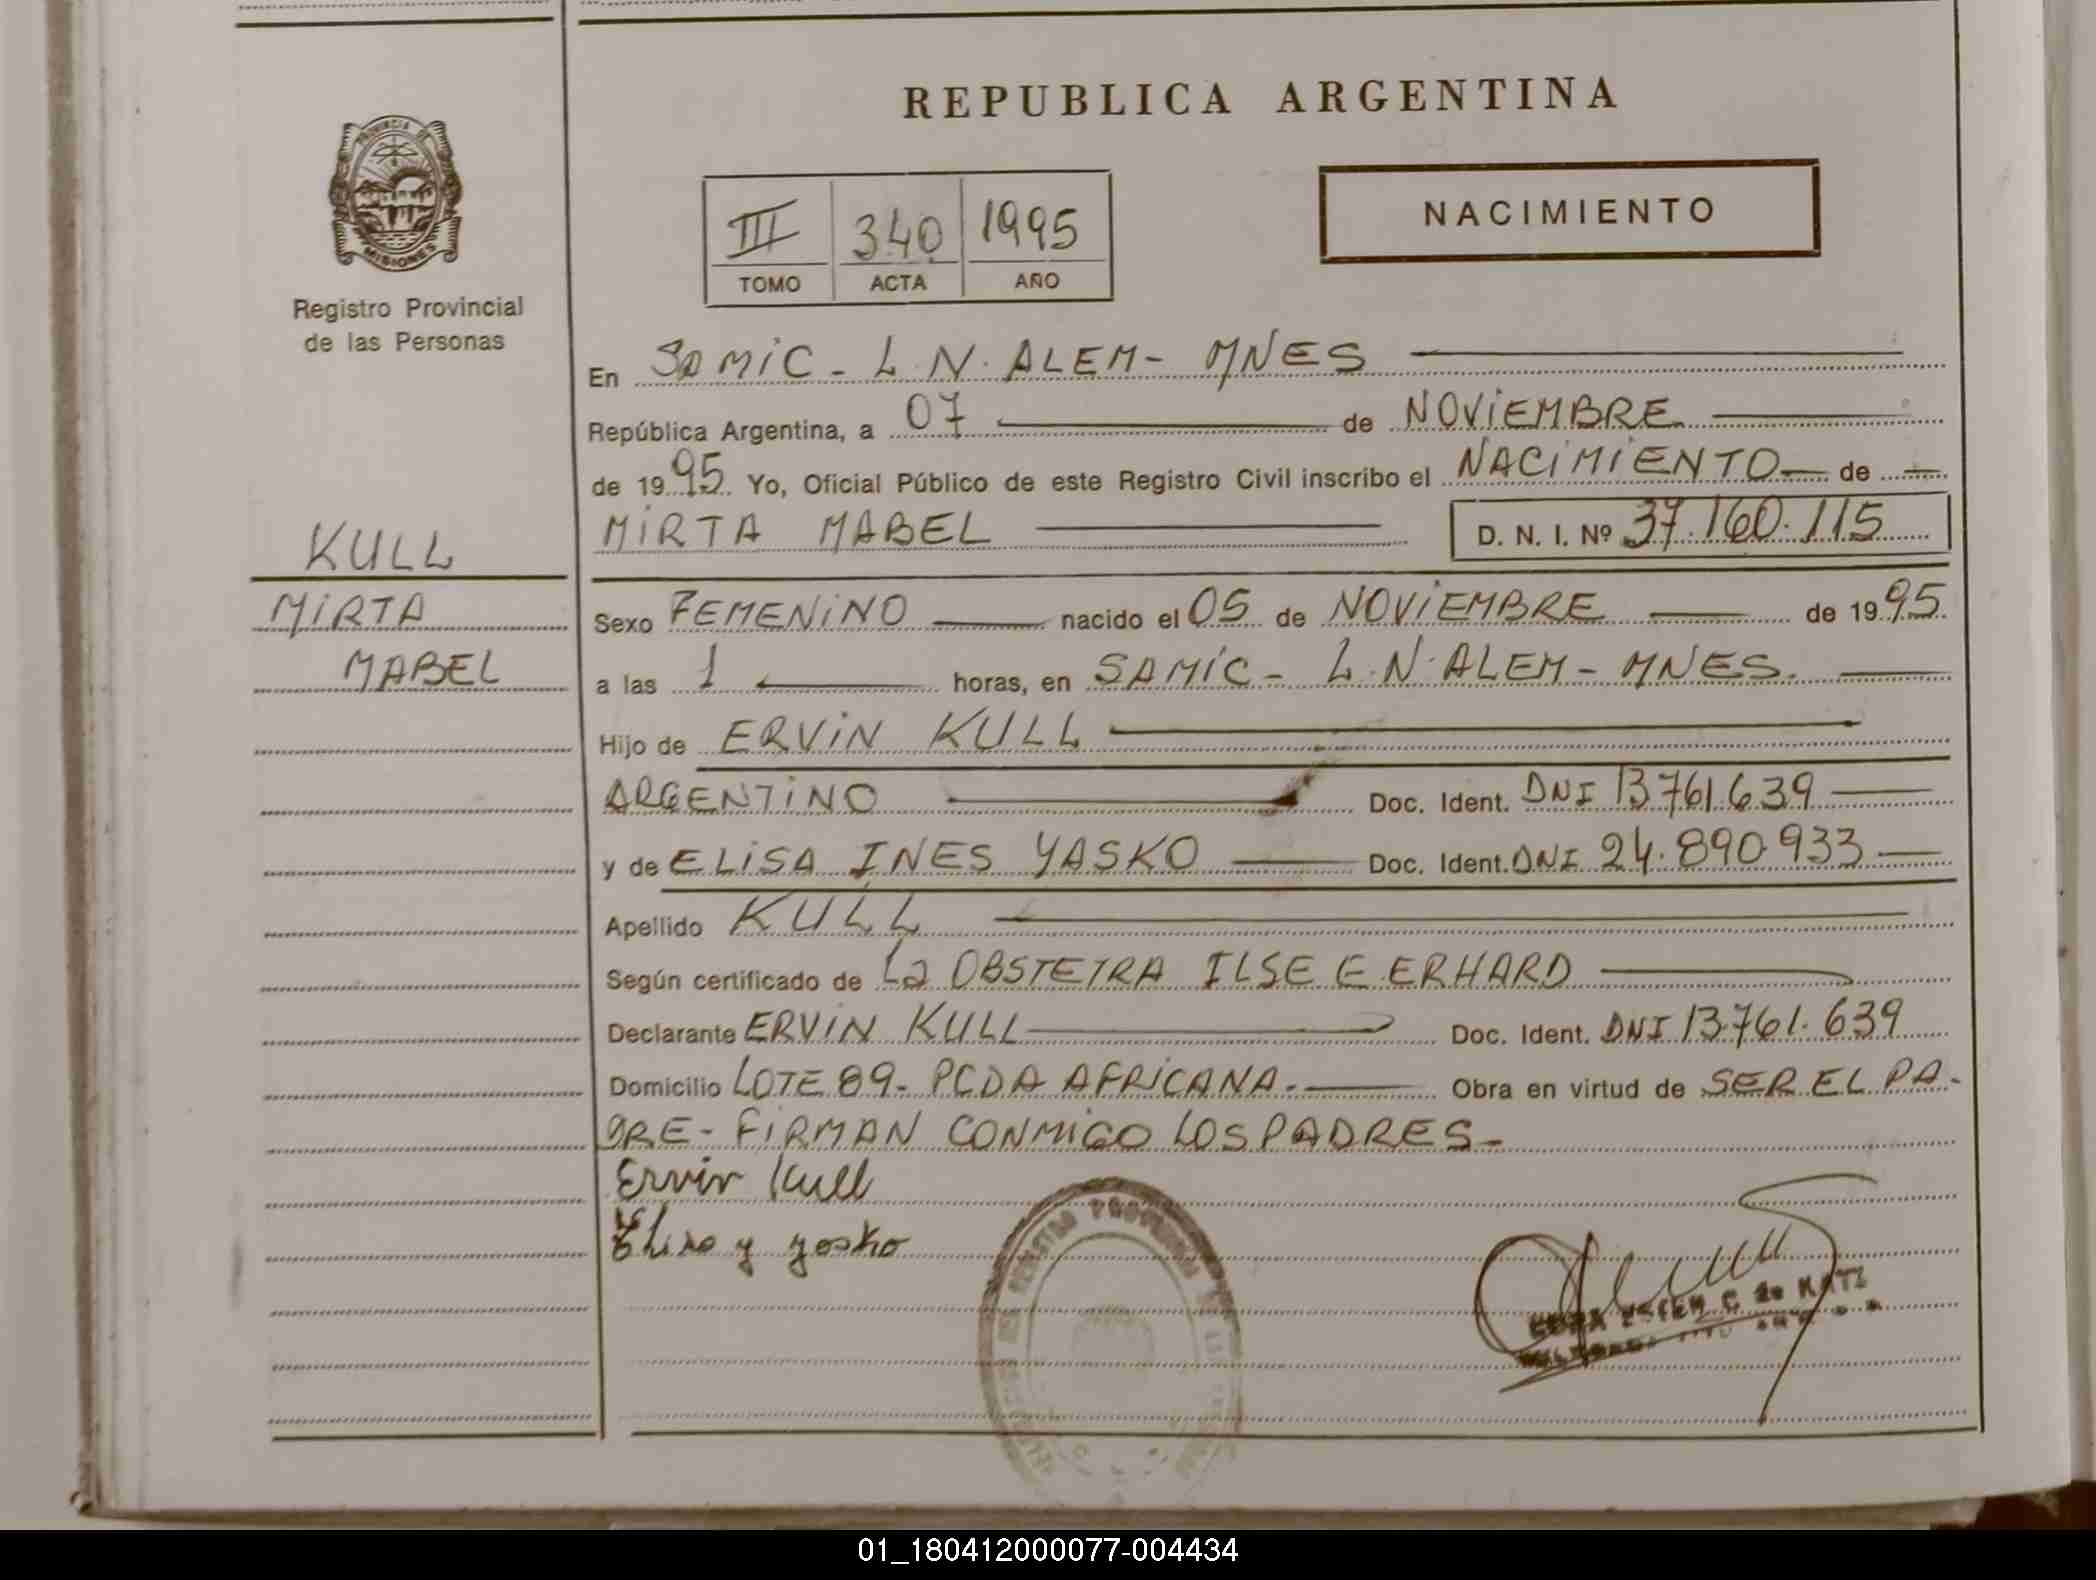 REPUBLICA ARGENTINA
PROVINCIA DE
MISIONES
Registro Provincial
de las Personas
III 340 1995
TOMO ACTA AÑO
NACIMIENTO
En SAMIC - L.N. ALEM - MNES
República Argentina, a 07 de NOVIEMBRE
de 1995. Yo, Oficial Público de este Registro Civil inscribo el NACIMIENTO de
MIRTA MABEL D. N. I. Nº 37.160.115
KULL
MIRTA
MABEL
Sexo FEMENINO nacido el 05 de NOVIEMBRE de 1995.
a las 1 horas, en SAMIC - L.N. ALEM - MNES.
Hijo de ERVIN KULL
ARGENTINO Doc. Ident. DNI 13.761.639
y de ELISA INES YASKO Doc. Ident. DNI 24.890.933
Apellido KULL
Según certificado de La OBSTETRA ILSE E. ERHARD
Declarante ERVIN KULL Doc. Ident. DNI 13.761.639
Domicilio LOTE 89 - PCDA AFRICANA. Obra en virtud de SER EL PA-
DRE - FIRMAN CONMIGO LOS PADRES -
Ervin Kull
Elisa y yasko
REGISTRO PROVINCIAL DE LAS
ESTER C. de KATZ
01_180412000077-004434